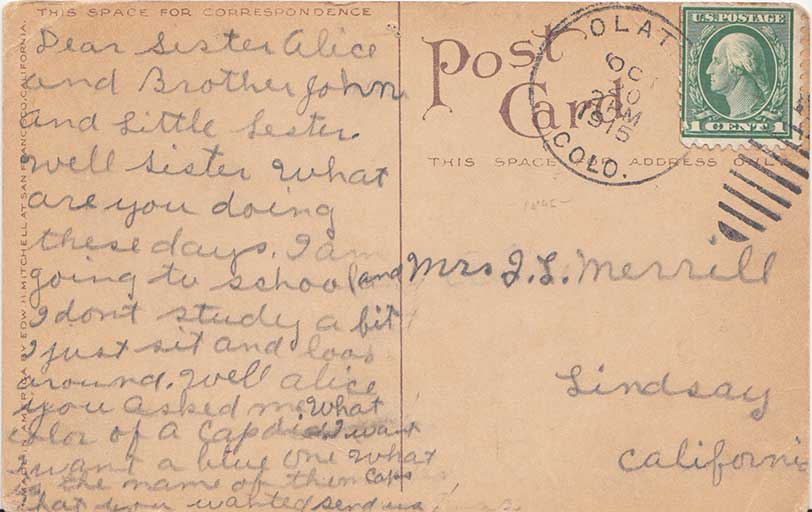 THIS SPACE FOR CORRESPONDENCE
Dear Sister Alice
and Brother John
and Little Lester
well Sister What
are you doing
these days. I am
going to school and
I don't study a bit
I just sit and look
around. Well Alice
you asked me What
color of a Cap did I want
I want a blue one What
is the name of them Caps
that you wanted send us
MADE IN AMERICA BY EDW H MITCHELL AT SAN FRANCISCO, CALIFORNIA.
Post
Card
THIS SPACE FOR ADDRESS ONLY
OLAT
OCT
20
AM
1915
COLO.
U.S. POSTAGE
1 CENT 1
Mrs J. L. Merrill
Lindsay
California